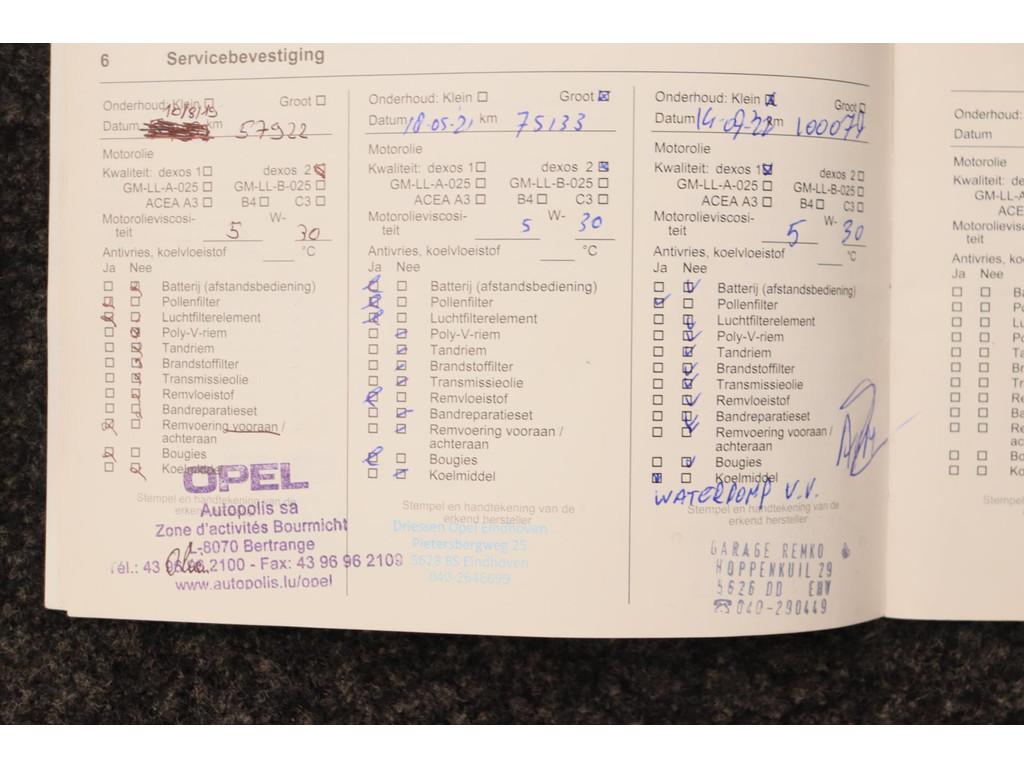 6 Servicebevestiging
Onderhoud: Klein Groot
10/8/19
Datum km 57922
Motorolie
Kwaliteit: dexos 1 dexos 2
GM-LL-A-025 GM-LL-B-025
ACEA A3 B4 C3
Motorolieviscosi-
teit 5 W- 30
Antivries, koelvloeistof °C
Ja Nee
Batterij (afstandsbediening)
Pollenfilter
Luchtfilterelement
Poly-V-riem
Tandriem
Brandstoffilter
Transmissieolie
Remvloeistof
Bandreparatieset
Remvoering vooraan /
achteraan
Bougies
Koelmiddel
OPEL
Stempel en handtekening van de
Autopolis sa
Zone d'activités Bourmicht
L-8070 Bertrange
Tél.: 43 96 96 2100 - Fax: 43 96 96 2109
www.autopolis.lu/opel
Onderhoud: Klein Groot
Datum 18-05-21 km 75133
Motorolie
Kwaliteit: dexos 1 dexos 2
GM-LL-A-025 GM-LL-B-025
ACEA A3 B4 C3
Motorolieviscosi-
teit 5 W- 30
Antivries, koelvloeistof °C
Ja Nee
Batterij (afstandsbediening)
Pollenfilter
Luchtfilterelement
Poly-V-riem
Tandriem
Brandstoffilter
Transmissieolie
Remvloeistof
Bandreparatieset
Remvoering vooraan /
achteraan
Bougies
Koelmiddel
Stempel en handtekening van de
erkend hersteller
Driessen Opel Eindhoven
Pietersbergweg 25
5628 BS Eindhoven
040-2646699
Onderhoud: Klein Groot
Datum km
Motorolie
Kwaliteit: dexos 1 dexos 2
GM-LL-A-025 GM-LL-B-025
ACEA A3 B4 C3
Motorolieviscosi-
teit 5 W- 30
Antivries, koelvloeistof °C
Ja Nee
Batterij (afstandsbediening)
Pollenfilter
Luchtfilterelement
Poly-V-riem
Tandriem
Brandstoffilter
Transmissieolie
Remvloeistof
Bandreparatieset
Remvoering vooraan /
achteraan
Bougies
Koelmiddel
WATERPOMP V.V.
Stempel en handtekening van de
erkend hersteller
GARAGE REMKO
HOPPENKUIL 29
5626 DD EHV
040-290449
Onderhoud:
Datum
Motorolie
Kwaliteit: de
GM-LL-A
ACE
Motorolievisc
teit
Antivries, ko
Ja Nee
Ba
Po
Lu
Po
Ta
Br
Tr
Re
Ba
Re
ac
Bo
Ko
Stempe